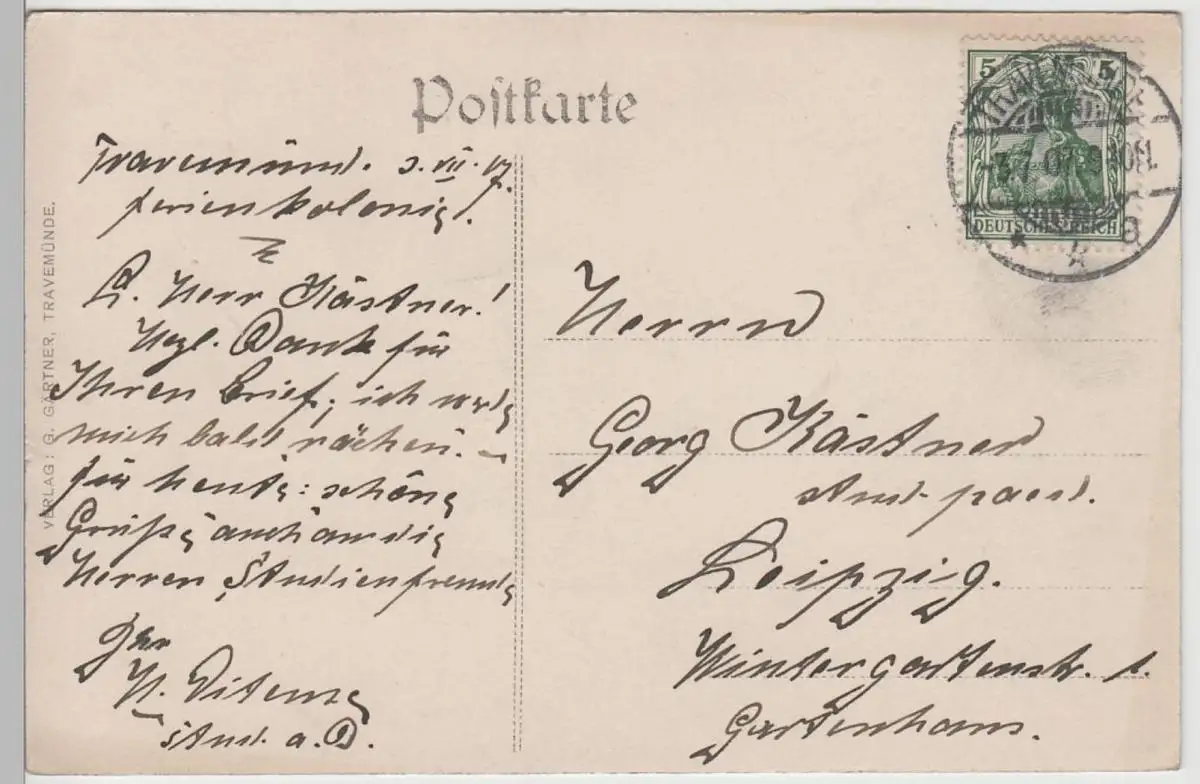 Postkarte
5 5
DEUTSCHES REICH
3.7.07
a
Travemünde. 3. VII. 07.
Ferienkolonie.
L. Herr Kästner!
Hrzl. Dank für
Ihren Brief, ich werde
mich bald rächen. –
für heute: schöne
Grüße auch an die
Herren Studienfreunde
Ihr
stud. a. D.
Herrn
Georg Kästner
stud. paed.
Leipzig.
Wintergartenstr. 1.
Gartenhaus.
VERLAG: G. GÄRTNER, TRAVEMÜNDE.